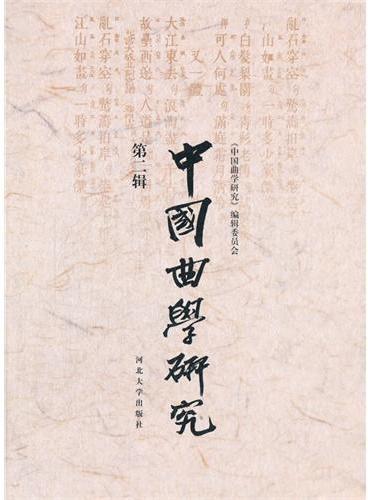 亂石穿空句驚濤拍岸
江山如畫句一時多少
白髮梨園句青衫
可人何處句滿庭
又一體
大江東去句浪淘
故壘西邊句人道是
亂石穿空句驚濤拍岸
江山如畫句一時多少豪傑
《中国曲学研究》编辑委员会
中國曲學研究
第二辑
河北大学出版社